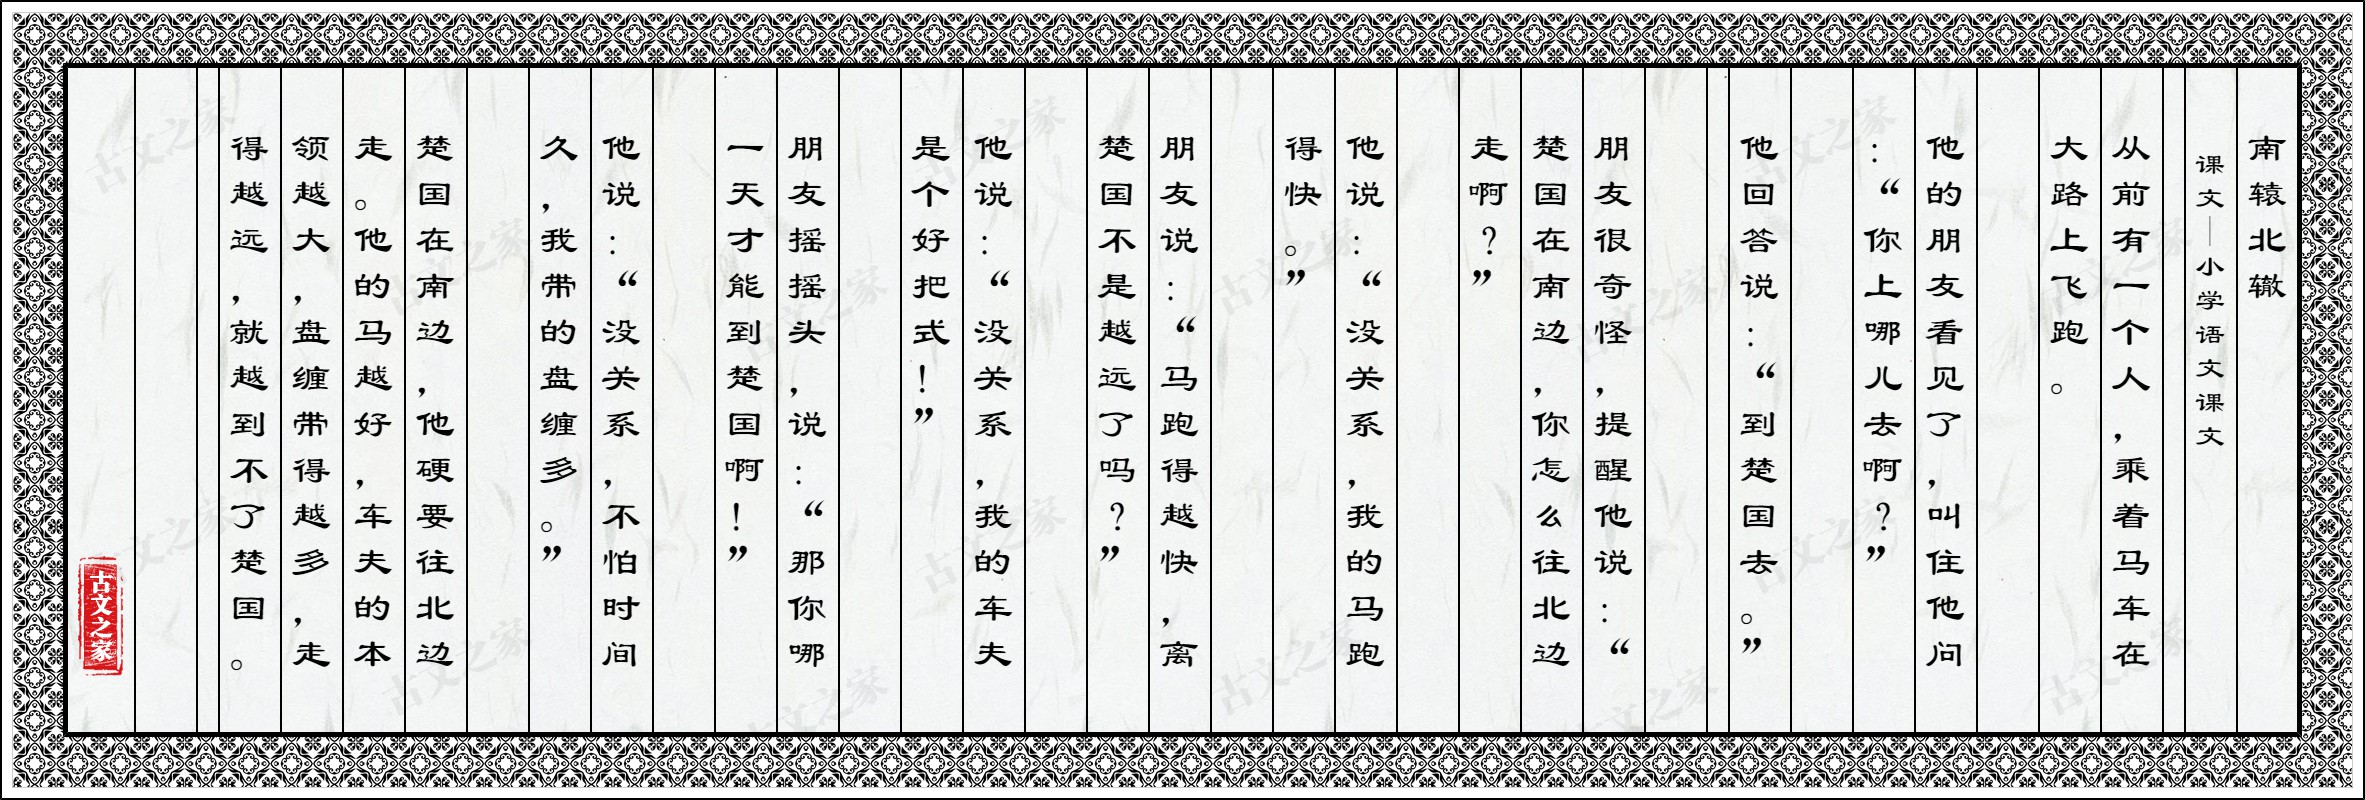 南辕北辙
课文—小学语文课文
从前有一个人，乘着马车在
大路上飞跑。
他的朋友看见了，叫住他问
：“你上哪儿去啊？”
他回答说：“到楚国去。”
朋友很奇怪，提醒他说：“
楚国在南边，你怎么往北边
走啊？”
他说：“没关系，我的马跑
得快。”
朋友说：“马跑得越快，离
楚国不是越远了吗？”
他说：“没关系，我的车夫
是个好把式！”
朋友摇摇头，说：“那你哪
一天才能到楚国啊！”
他说：“没关系，不怕时间
久，我带的盘缠多。”
楚国在南边，他硬要往北边
走。他的马越好，车夫的本
领越大，盘缠带得越多，走
得越远，就越到不了楚国。
古文之家